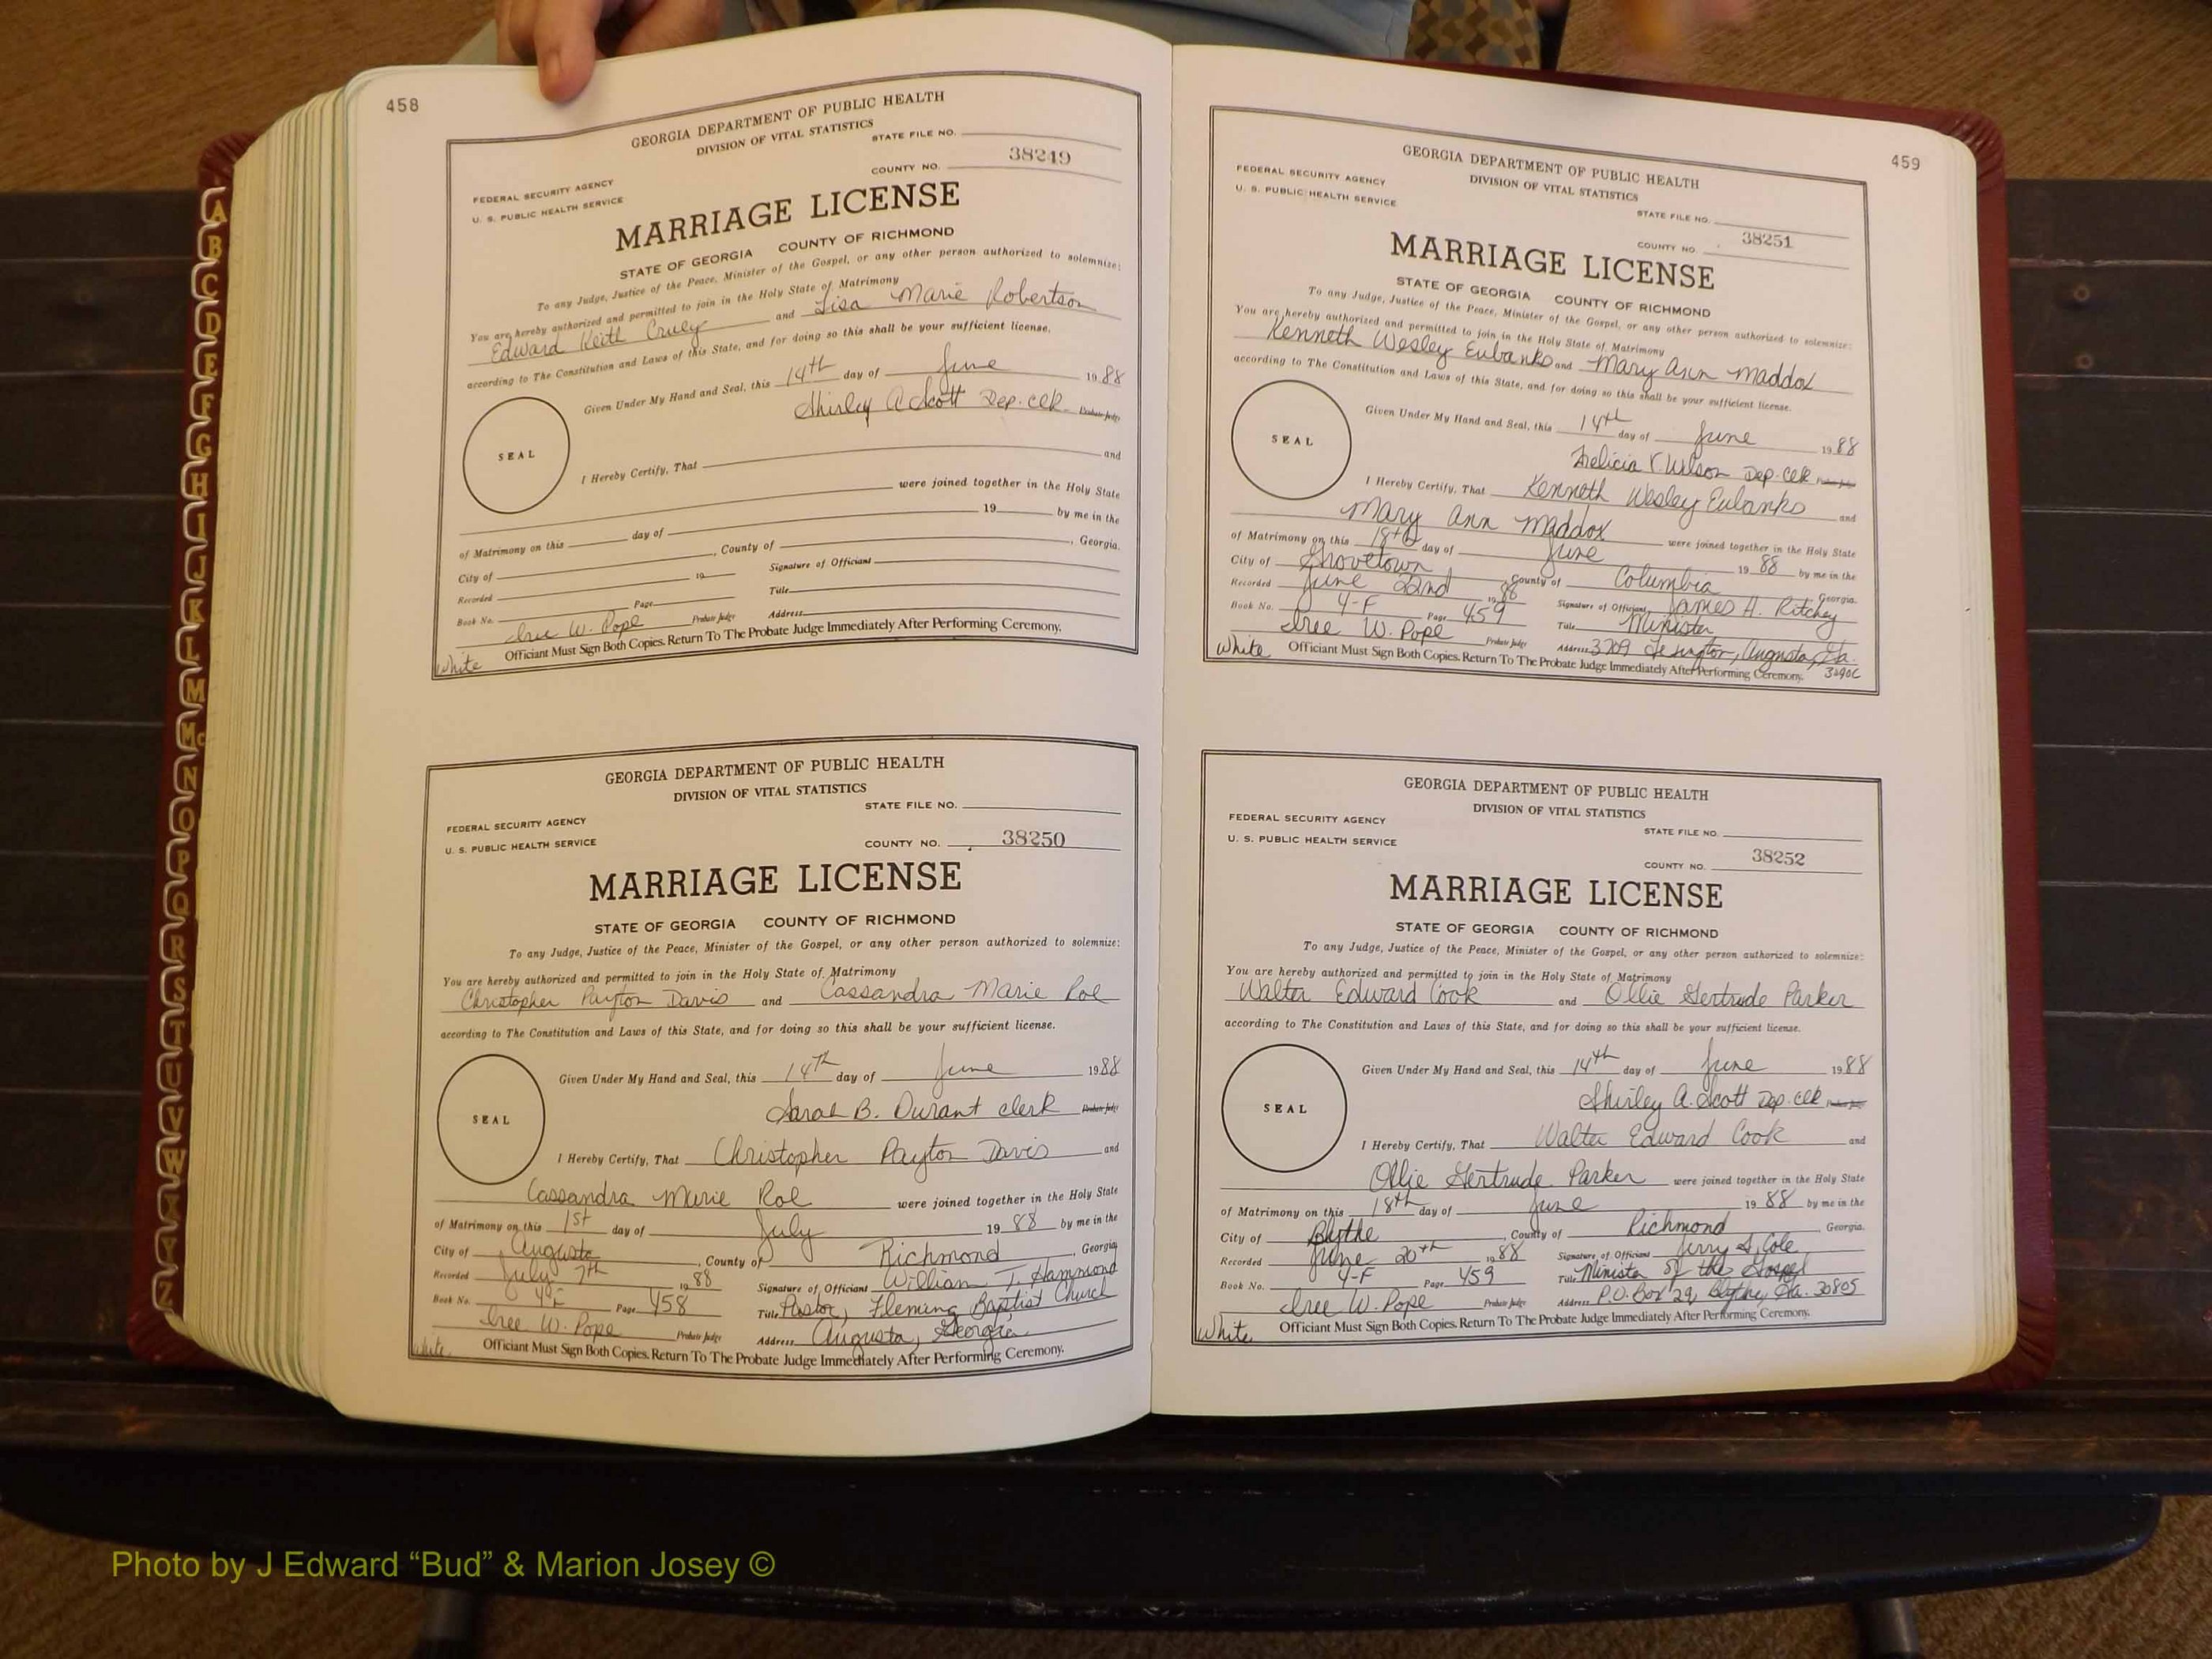 458
GEORGIA DEPARTMENT OF PUBLIC HEALTH
DIVISION OF VITAL STATISTICS
STATE FILE NO.
FEDERAL SECURITY AGENCY
U. S. PUBLIC HEALTH SERVICE
COUNTY NO. 38249
MARRIAGE LICENSE
STATE OF GEORGIA COUNTY OF RICHMOND
To any Judge, Justice of the Peace, Minister of the Gospel, or any other person authorized to solemnize:
You are hereby authorized and permitted to join in the Holy State of Matrimony
Edward Keith Cruey and Lisa Marie Robertson
according to The Constitution and Laws of this State, and for doing so this shall be your sufficient license.
Given Under My Hand and Seal, this 14th day of June 1988
Shirley A Scott Dep. Clk. Probate Judge
SEAL
I Hereby Certify, That and
were joined together in the Holy State
of Matrimony on this day of 19 by me in the
City of , County of , Georgia.
Recorded 19 Signature of Officiant
Book No. Page Title
Iree W. Pope Probate Judge Address
White Officiant Must Sign Both Copies. Return To The Probate Judge Immediately After Performing Ceremony.
GEORGIA DEPARTMENT OF PUBLIC HEALTH
DIVISION OF VITAL STATISTICS
STATE FILE NO.
FEDERAL SECURITY AGENCY
U. S. PUBLIC HEALTH SERVICE
COUNTY NO. 38250
MARRIAGE LICENSE
STATE OF GEORGIA COUNTY OF RICHMOND
To any Judge, Justice of the Peace, Minister of the Gospel, or any other person authorized to solemnize:
You are hereby authorized and permitted to join in the Holy State of Matrimony
Christopher Payton Davis and Cassandra Marie Roe
according to The Constitution and Laws of this State, and for doing so this shall be your sufficient license.
Given Under My Hand and Seal, this 14th day of June 1988
Sarah B. Durant Clerk Probate Judge
SEAL
I Hereby Certify, That Christopher Payton Davis and
Cassandra Marie Roe were joined together in the Holy State
of Matrimony on this 1st day of July 1988 by me in the
City of Augusta , County of Richmond , Georgia
Recorded July 7th 1988 Signature of Officiant William T. Hammond
Book No. Page 458 Title Pastor, Fleming Baptist Church
Iree W. Pope Probate Judge Address Augusta, Georgia
White Officiant Must Sign Both Copies. Return To The Probate Judge Immediately After Performing Ceremony.
459
GEORGIA DEPARTMENT OF PUBLIC HEALTH
DIVISION OF VITAL STATISTICS
FEDERAL SECURITY AGENCY
U. S. PUBLIC HEALTH SERVICE
STATE FILE NO.
COUNTY NO. 38251
MARRIAGE LICENSE
STATE OF GEORGIA COUNTY OF RICHMOND
To any Judge, Justice of the Peace, Minister of the Gospel, or any other person authorized to solemnize:
You are hereby authorized and permitted to join in the Holy State of Matrimony
Kenneth Wesley Eubanks and Mary Ann Maddox
according to The Constitution and Laws of this State, and for doing so this shall be your sufficient license.
Given Under My Hand and Seal, this 14th day of June 1988
Wilson Dep. Clk Probate Judge
SEAL
I Hereby Certify, That Kenneth Wesley Eubanks and
Mary Ann Maddox were joined together in the Holy State
of Matrimony on this 18th day of June 1988 by me in the
City of Grovetown , County of Columbia Georgia.
Recorded June 22nd 1988 Signature of Officiant James H. Ritchey
Book No. 4-F Page 459 Title Minister
Iree W. Pope Probate Judge Address 3709 Augusta, Ga.
White Officiant Must Sign Both Copies. Return To The Probate Judge Immediately After Performing Ceremony.
GEORGIA DEPARTMENT OF PUBLIC HEALTH
DIVISION OF VITAL STATISTICS
FEDERAL SECURITY AGENCY
U. S. PUBLIC HEALTH SERVICE
STATE FILE NO.
COUNTY NO. 38252
MARRIAGE LICENSE
STATE OF GEORGIA COUNTY OF RICHMOND
To any Judge, Justice of the Peace, Minister of the Gospel, or any other person authorized to solemnize:
You are hereby authorized and permitted to join in the Holy State of Matrimony
Walter Edward Cook and Ollie Gertrude Parker
according to The Constitution and Laws of this State, and for doing so this shall be your sufficient license.
Given Under My Hand and Seal, this 14th day of June 1988
Shirley A. Scott Dep. Clk Probate Judge
SEAL
I Hereby Certify, That Walter Edward Cook and
Ollie Gertrude Parker were joined together in the Holy State
of Matrimony on this 18th day of June 1988 by me in the
City of Blythe , County of Richmond Georgia.
Recorded June 20th 1988 Signature of Officiant Jerry S. Cole
Book No. 4-F Page 459 Title Minister of the Gospel
Iree W. Pope Probate Judge Address P.O. Box 29, Blythe, Ga. 30805
White Officiant Must Sign Both Copies. Return To The Probate Judge Immediately After Performing Ceremony.
A
B
C
D
E
F
G
H
I
J
K
L
M
Mc
N
O
P
Q
R
S
T
U
V
W
X
Y
Z
Photo by J Edward “Bud” & Marion Josey ©